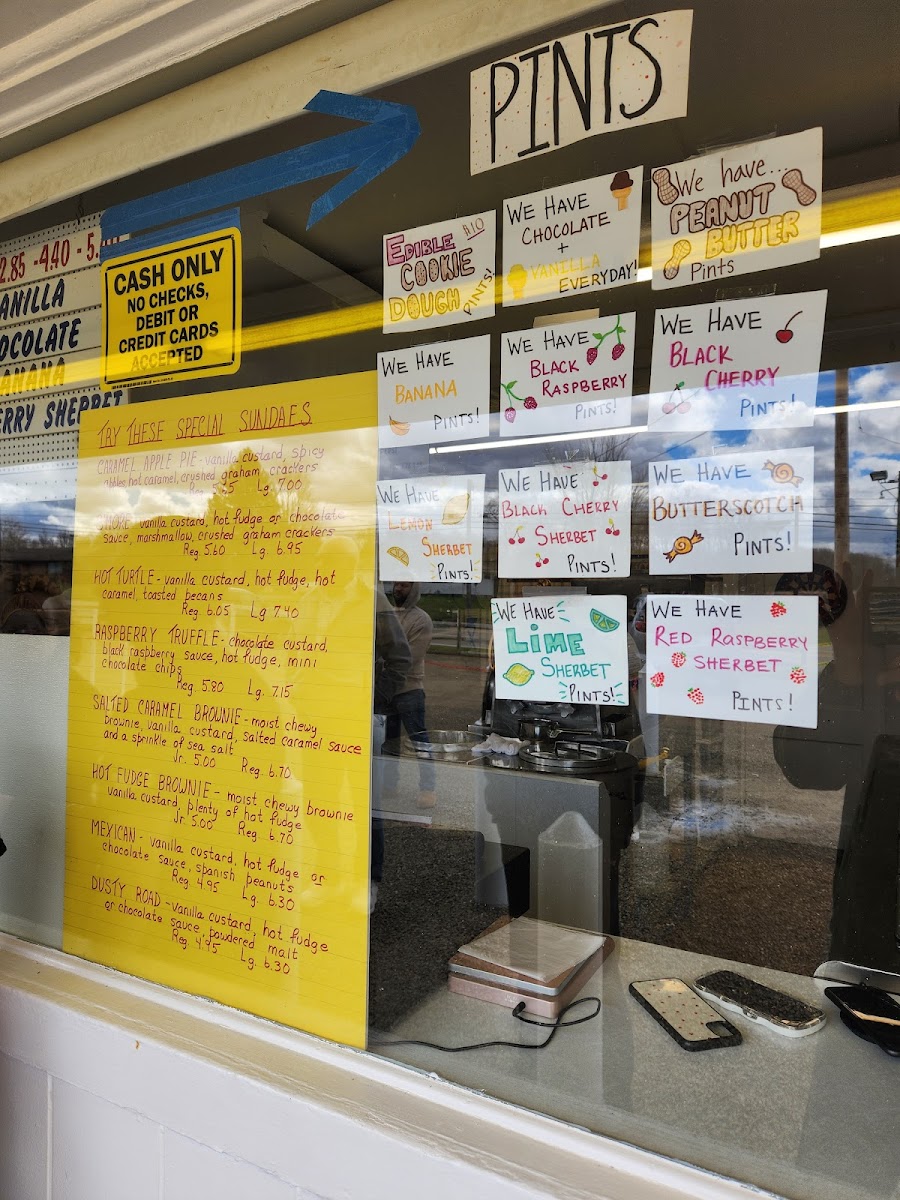 PINTS
2.85 - 4.40 - 5.
ANILLA
OCOLATE
ANANA
ERRY SHERBET
CASH ONLY
NO CHECKS,
DEBIT OR
CREDIT CARDS
ACCEPTED
TRY THESE SPECIAL SUNDAES
CARAMEL APPLE PIE - vanilla custard, spicy
apples, hot caramel, crushed graham crackers
Reg. Lg. 7.00
SMORE - vanilla custard, hot fudge or chocolate
sauce, marshmallow, crushed graham crackers
Reg. 5.60 Lg. 6.95
HOT TURTLE - vanilla custard, hot fudge, hot
caramel, toasted pecans
Reg. 6.05 Lg 7.40
RASPBERRY TRUFFLE - chocolate custard,
black raspberry sauce, hot fudge, mini
chocolate chips
Reg. 5.80 Lg. 7.15
SALTED CARAMEL BROWNIE - moist chewy
brownie, vanilla custard, salted caramel sauce
and a sprinkle of sea salt
Jr. 5.00 Reg. 6.70
HOT FUDGE BROWNIE - moist chewy brownie
vanilla custard, plenty of hot fudge
Jr. 5.00 Reg. 6.70
MEXICAN - vanilla custard, hot fudge or
chocolate sauce, spanish peanuts
Reg. 4.95 Lg. 6.30
DUSTY ROAD - vanilla custard, hot fudge
or chocolate sauce, powdered malt
Reg. 4.95 Lg. 6.30
EDIBLE $10
COOKIE
DOUGH PINTS!
WE HAVE
CHOCOLATE
+
VANILLA
EVERYDAY!
We have...
PEANUT
BUTTER
Pints
WE HAVE
BANANA
PINTS!
WE HAVE
BLACK
RASPBERRY
PINTS!
WE HAVE
BLACK
CHERRY
PINTS!
WE HAVE
LEMON
SHERBET
PINTS!
WE HAVE
BLACK CHERRY
SHERBET
PINTS!
WE HAVE
BUTTERSCOTCH
PINTS!
WE HAVE
LIME
SHERBET
PINTS!
WE HAVE
RED RASPBERRY
SHERBET
PINTS!